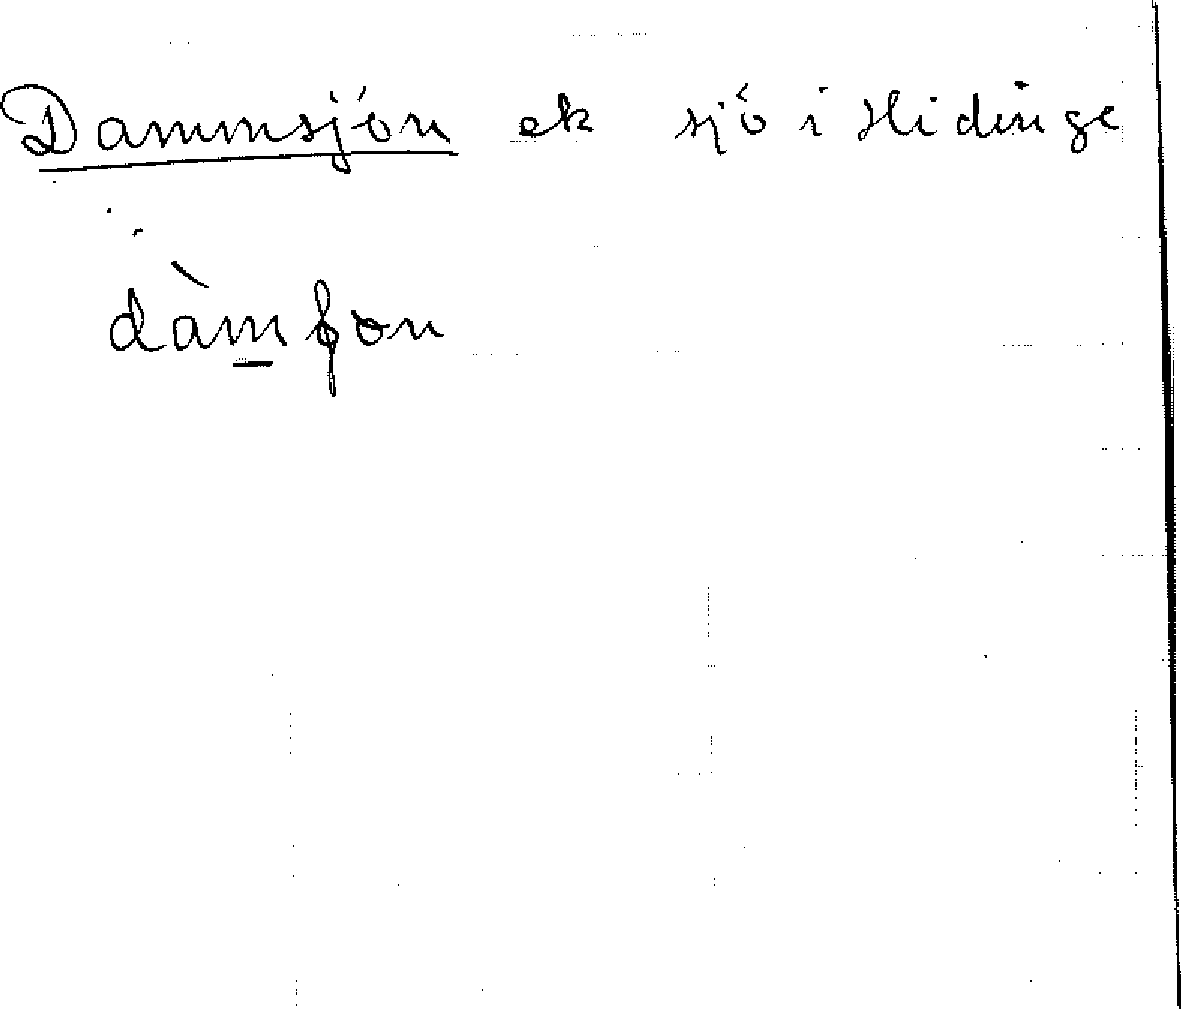 Dammsjön ek sjö i Hidinge
dàmʃɷn